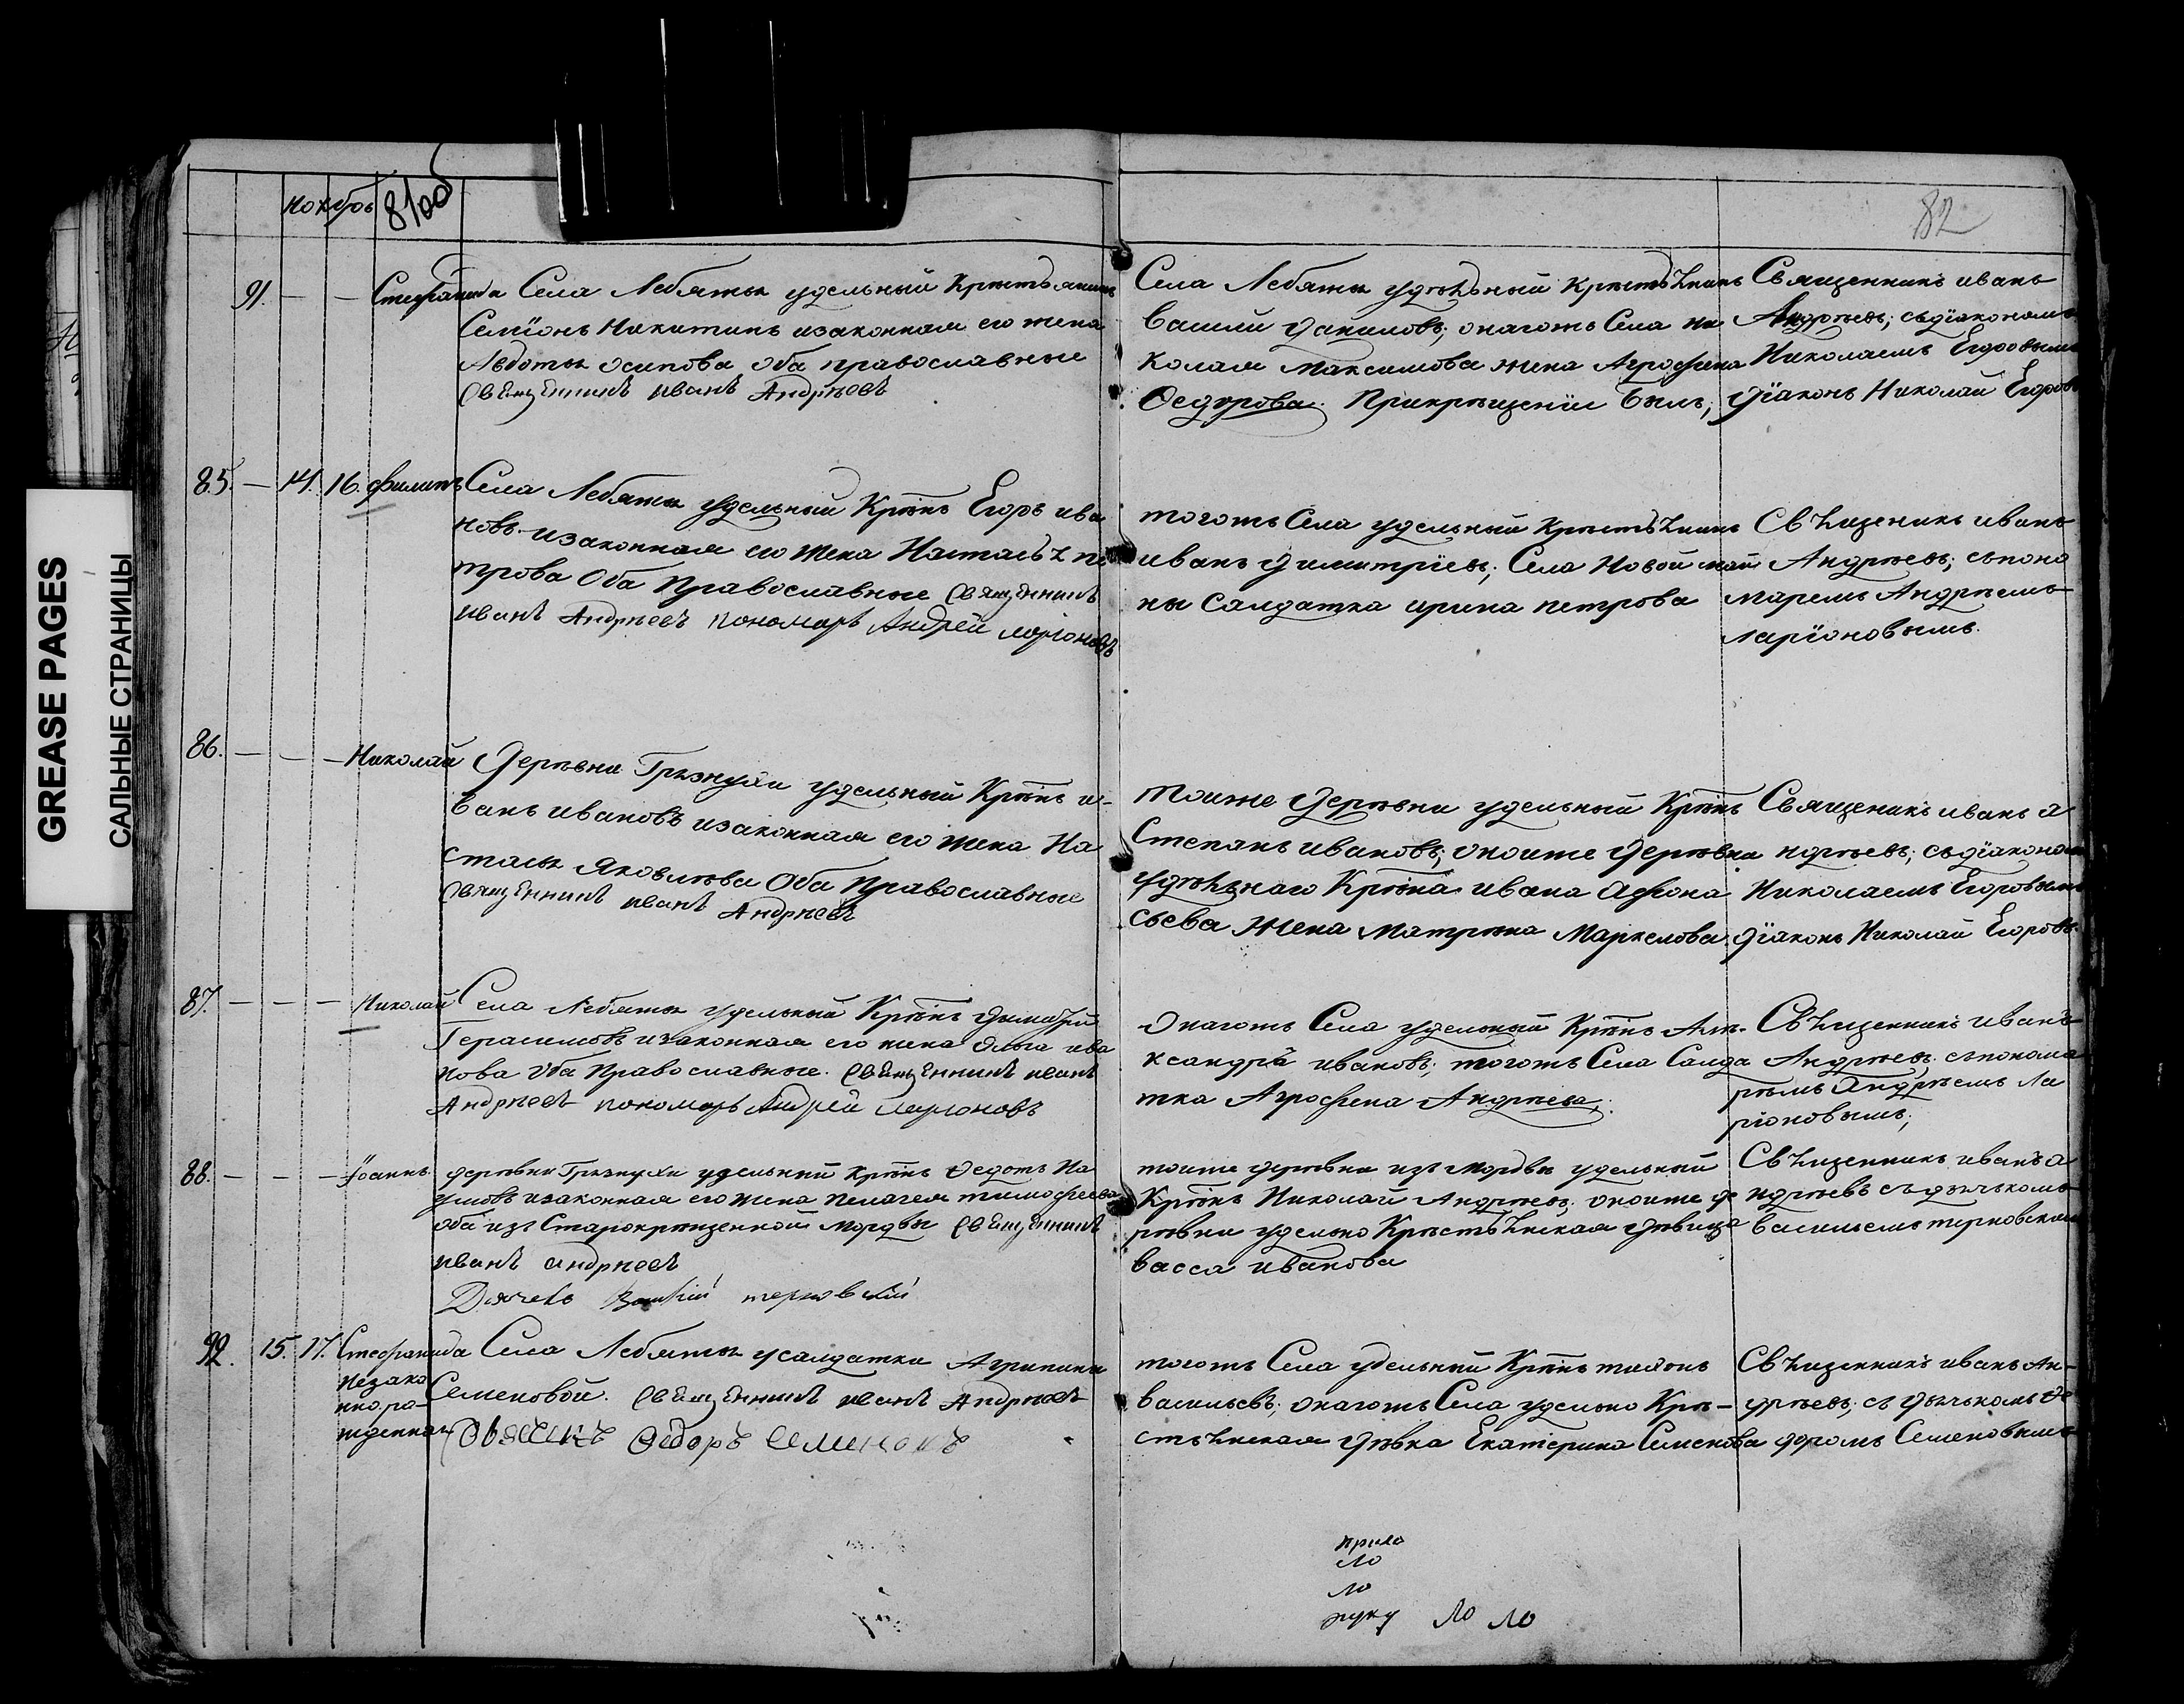 GREASE PAGES
САЛЬНЫЕ СТРАНИЦЫ
ноябрь
81об
82
91. — — Стефанида
Села Лебяжья удельный Крестьянинъ
Семiонъ Никитинъ изаконная его жена
Авдотья Осипова Оба православные
Священникъ иванъ Андреевъ
Села Лебяжья удельный крестьянинъ
Василий даниловъ; онагожъ Села ни
колая Максимова жена Агрофена
Федорова. Прикрещенiи былъ;
Священникъ иванъ
Андреевъ; съдiакономъ
Николаемъ Егоровымъ
дiаконъ Николай Егоровъ
85. — 14. 16. филипъ
Села Лебяжья удельный Крѣнъ Егоръ ива
новъ изаконная его жена Настасья пе
трова Оба Православные Священникъ
иванъ Андреевъ пономарь Андрей ларионовъ
тогожъ Села удельный крестьянинъ
иванъ димитрiевъ; Села Новой май
ны Салдатка ирина петрова
Священикъ иванъ
Андреевъ; спонo
маремъ Андреемъ
Ларiоновымъ.
86. — — — Николай
Деревни Грязнухи удельный Крѣнъ и-
ванъ ивановъ изаконная его жена На
стасья Яковлева Оба Православные
Священникъ иванъ Андреевъ
тоиже Деревни удельный Крѣнъ
Степанъ ивановъ; оноиже Деревни
удельнаго Крѣна ивана Афона
сьева жена Матрена Маркелова
Свящeникъ иванъ а
ндреевъ; съдiакономъ
Николаемъ Егоровымъ
дiаконъ Николай Егоровъ
87. — — — Николай
Села Лебяжья удельный Крѣнъ Димитрiй
Герасимовъ изаконная его жена Ольга ива
нова Оба Православные. Священникъ иванъ
Андреевъ пономарь Андрей ларионовъ
Онагожъ Села удельный Крѣнъ Але-
ксандръ ивановъ; тогожъ Села Салда
тка Агрофена Андреева;
Священникъ иванъ
Андреевъ. спонома
ремъ Андреемъ Ла
рiоновымъ;
88. — — — Iоаннъ
деревни Грязнухи удельный крѣнъ Федотъ На
умовъ изаконная его жена пелагея тимофеева
оба изъ Старокрещенной мордвы Священникъ
иванъ андреевъ
Дячекъ терновскiй
тоиже деревни изъ мордвы удельный
Крѣнъ Николай Андреевъ. оноиже де
ревни удельно Крестьянская девица
васса иванова
Священникъ иванъ а
ндреевъ съдьячькомъ
василиемъ терновскимъ
92. 15. 17. Стефанида
незако
нно ро-
жденная
Села Лебяжья усалдатки Агрипины
Семеновой. Священникъ иванъ Андреевъ
Федоръ Семеновъ
тогожъ Села удельный Крѣнъ
васильевъ; онагожъ Села удельно Кре-
стьянская девка Екатерина Семенова
Священникъ иванъ Ан-
дреевъ; съ дьячькомъ Фе
доромъ Семеновымъ
ло
ло
руку ло ло